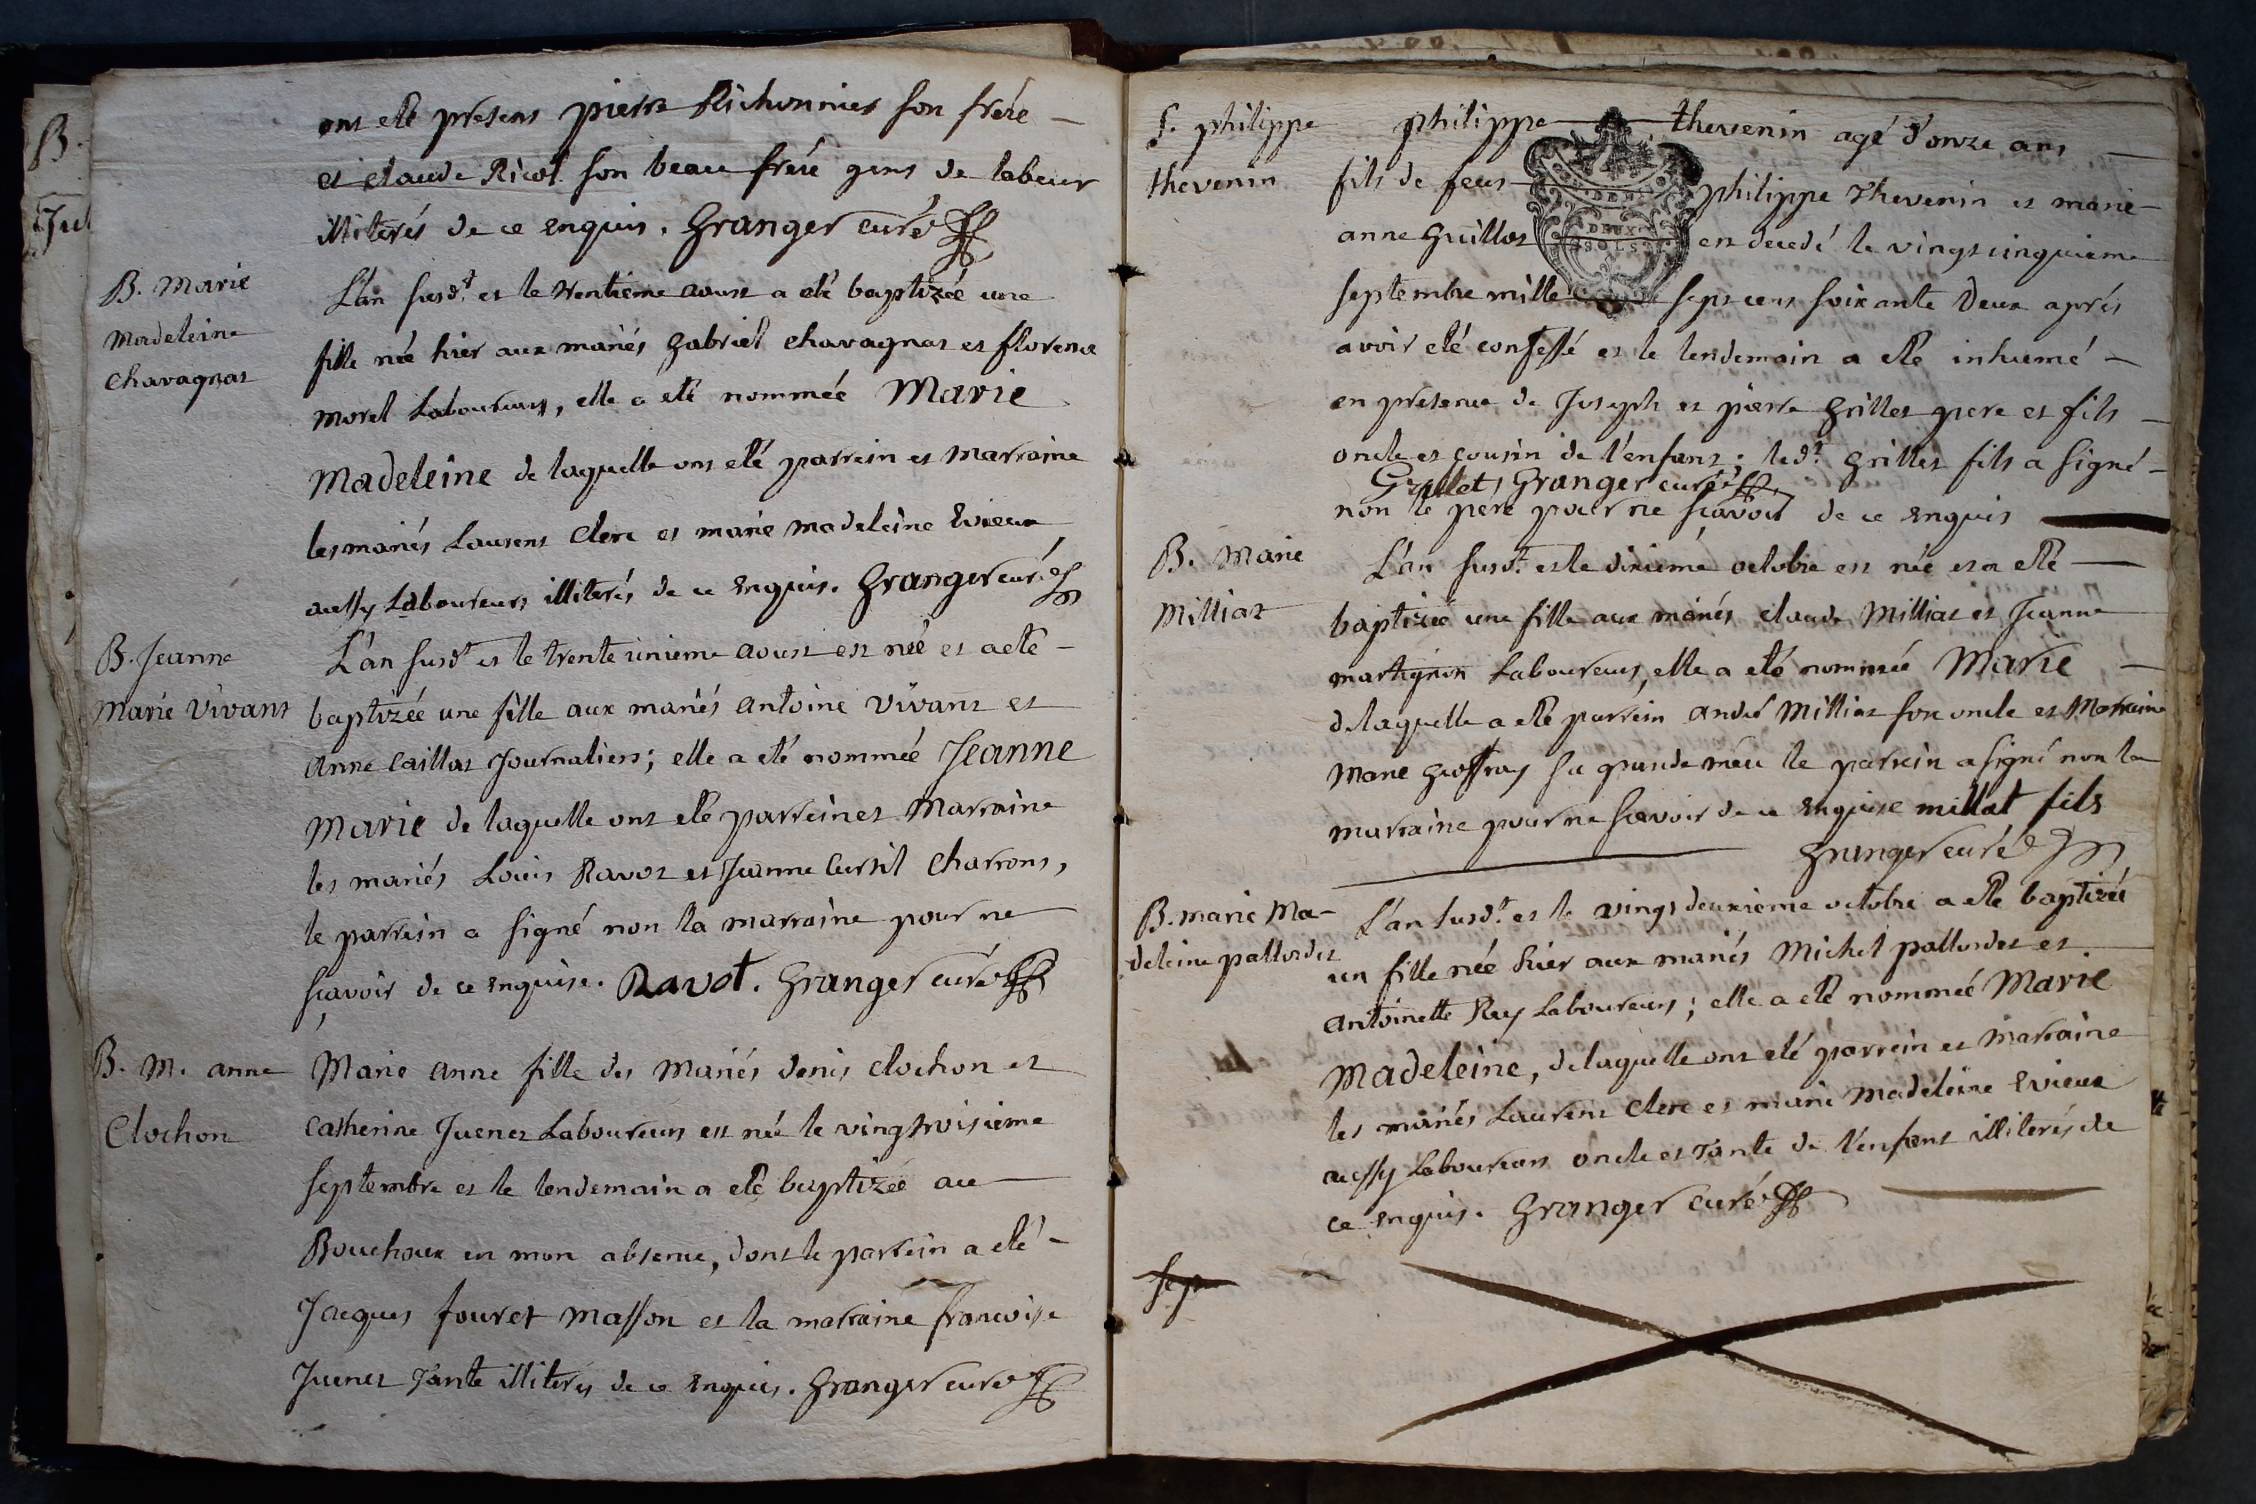 ont eté presens pierre Richonnier son frére
et claude Ricol son beau frére gens de labeur
illiterés de ce enquis. Granger curé
B. Marie
Madeleine
Chavagnat
L'an susd.t et le trentieme aoust a eté baptizée une
fille née hier aux mariés gabriel chavagnat et florence
morel Laboureurs, elle a eté nommée Marie
Madeleine de laquelle ont eté parrein et marraine
les mariés Laurent Clerc et marie madeleine Evieux
aussy Laboureurs illiterés de ce enquis. Granger curé
B. Jeanne
Marie Vivant
L'an susd.t et le trente unieme aoust est née et a eté
baptizée une fille aux mariés antoine Vivant et
Anne Caillat Journaliers; elle a eté nommée Jeanne
Marie de laquelle ont eté parrein et Marraine
les mariés Louis Ravot et Jeanne Curtil Charrons,
le parrein a signé non la marraine pour ne
sçavoir de ce enquise. Ravot. Granger curé
B. M. anne
Clochon
Marie anne fille des Mariés denis clochon et
catherine Juenet Laboureurs est née le vingtroisieme
septembre et le lendemain a eté baptizée au
Bouchoux en mon absence, dont le parrein a eté
Jacques fouret masson et la marraine francoise
Juenet Tante illiterés de ce enquis. Granger curé
S. philippe
thevenin
philippe thevenin agé d'onze ans
fils de feus philippe Thevenin et marie
DEUX
SOLS
anne Guillot est decedé le vingt cinquieme
septembre mille sept cens soixante Deux aprés
avoir eté confessé et le lendemain a eté inhumé
en presence de Joseph et pierre Grillet pere et fils
oncle et cousin de l'enfant; led.t Grillet fils a signé
Grillet, Granger curé
non le pere pour ne sçavoir de ce enquis
B. Marie
Milliat
L'an susd.t et le dixieme octobre est née et a eté
baptizée une fille aux mariés claude Milliat et Jeanne
martignon Laboureurs, elle a eté nommée Marie
de laquelle a eté parrein andré Milliat son oncle et Marraine
Marie Geoffray sa grande mére le parrein a signé non la
marraine pour ne sçavoir de ce enquise millat fils
Granger curé
B. marie Ma-
deleine pallordet
L'an susd.t et le vingt deuxieme octobre a eté baptizée
un fille née hier aux mariés Michel pallordet et
antoinette Ruy Laboureurs; elle a eté nommée Marie
Madeleine, de laquelle ont eté parrein et marraine
les mariés Laurent Clerc et marie Madeleine Evieux
aussy Laboureurs oncle et Tante de l'enfant illiterés de
ce enquis. Granger curé
sep